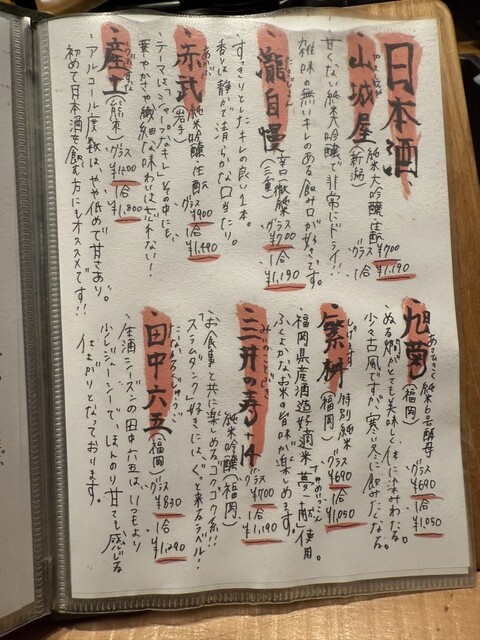 日本酒
・山城屋 純米大吟醸 生酛
やましろや (新潟) グラス ¥700
1合 ¥1,190
甘くない純米大吟醸で非常にドライ!!
雑味の無いキレのある飲み口が好きです。
・瀧自慢 辛口 純米
たきじまん (三重) グラス ¥700
1合 ¥1,190
すっきりとしたキレの良い1本。
香りは静かで清らかな口当たり。
・赤武 純米吟醸 生酛
あかぶ (岩手) グラス ¥900
1合 ¥1,490
テーマは、「シャープなキレ」 その中にも、
華やかさや繊細な味わいは忘れない!!
・産土 (熊本) グラス ¥1,200
うぶすな 1合 ¥1,800
・アルコール度数は、やや低めで甘さあり。
初めて日本酒を飲む方にもオススメです!!
・旭菊 純米 6号酵母
あさひきく (福岡) グラス ¥690
1合 ¥1,050
ぬる燗がとても美味しく体に染みわたる。
少々古風ですが、寒い冬に飲みたくなる。
・繁桝 特別純米
しげます (福岡) グラス ¥690
1合 ¥1,050
福岡県産酒造好適米「夢一献」使用。
ゆめいっこん
ふくよかなお米の旨味が楽しめます。
・三井の寿 +14
みいのことぶき 純米吟醸 (福岡)
グラス ¥700
1合 ¥1,190
お食事と共に楽しめるゴクゴク系!!
「スラムダンク」好きにはぐっと来るラベル!!
・田中六五 (福岡) グラス ¥830
たなかろくじゅうご 1合 ¥1,290
生酒シーズンの田中六五は、いつもより
少しジューシーで、ほんのり甘さも感じる
仕上がりとなっております。